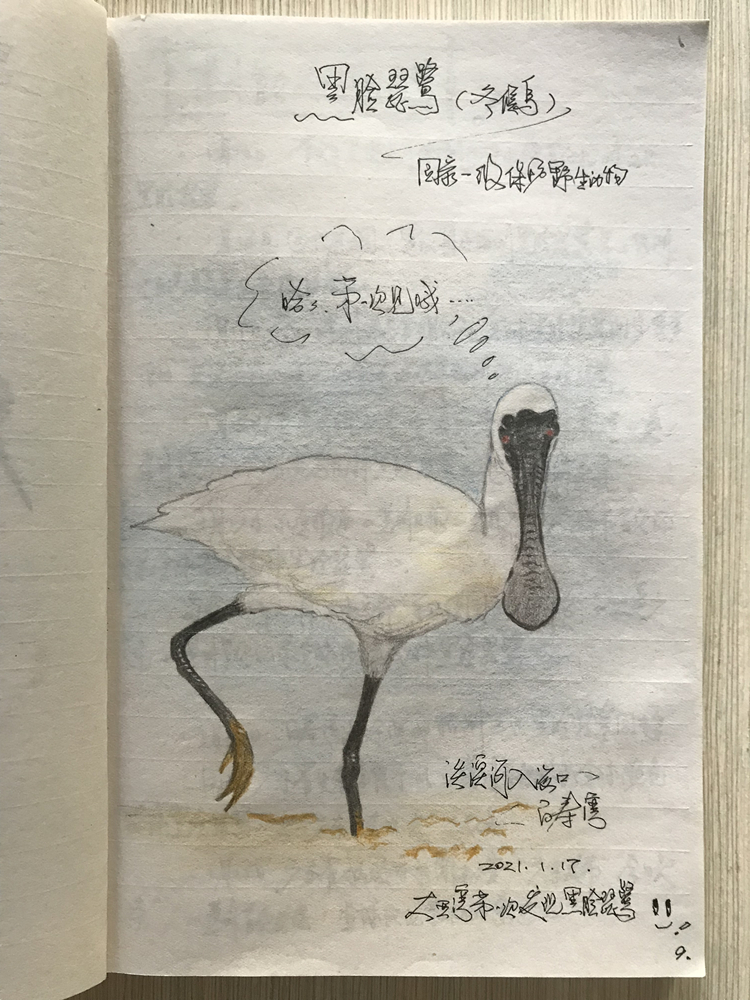 黑脸琵鹭（冬候鸟）
国家一级保护野生动物
第一次见哦……
淡澳河入海口
白寿湾
2021.1.17.
大亚湾第一次发现黑脸琵鹭
9.